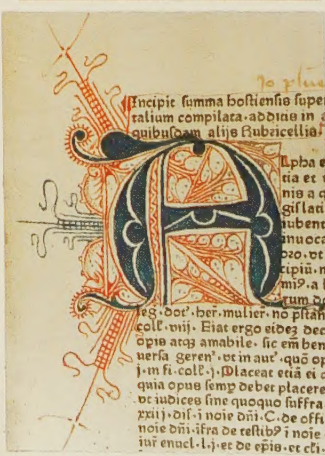 Jo plu
Incipit summa hostiensis supe
talium compilata·additis in a
quibusdam alijs Rubricellis·
A
lpha e
tia et v
nis a q
gislati
iubent
inuoc
pro.vt
cipiū·n
mi9.a
rum d
leg·dot͛·her͛·mulier͛·nō pstan
coll͛·viij·Eiat ergo eidez dec
opis atqz amabile·sic em ben
uersa geren͛·vt in aut͛·quō op
j·in fi·coll͛·j·Placeat etiā ei c
quia opus semp debet placere
vt iudices sine quoquo suffra
xxiij·dis·i noie dn̄i·C·de offi
noie dn̄i·ifra de testib9 i noie
iur͛ enucl·l·j·et de ep̄is·et cl̄i·